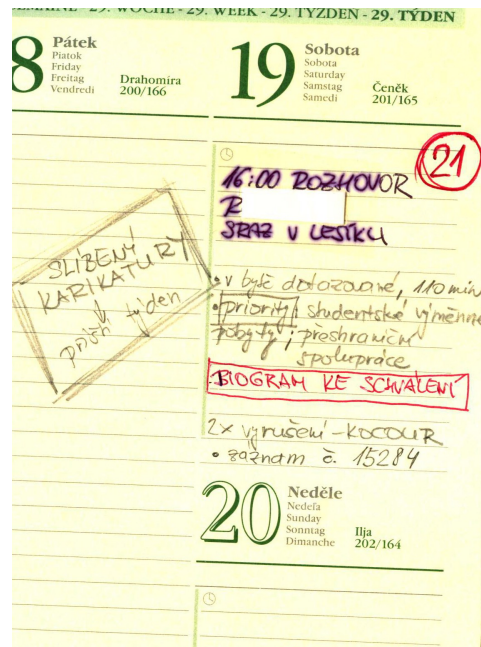 SEMAINE - 29. WOCHE - 29. WEEK - 29. TÝŽDEŇ - 29. TÝDEN
8
Pátek
Piatok
Friday
Freitag
Vendredi
Drahomíra
200/166
SLÍBENÝ
KARIKATURY
příští týden
19
Sobota
Sobota
Saturday
Samstag
Samedi
Čeněk
201/165
21
16:00 ROZHOVOR
R
SRAZ V LESÍKU
• v bytě dotazované, 110 min
• priority: studentské výměnné
pobyty; přeshraniční
spolupráce
BIOGRAM KE SCHVÁLENÍ
2x vyrušení - KOCOUR
• záznam č. 15284
20
Neděle
Nedeľa
Sunday
Sonntag
Dimanche
Ilja
202/164